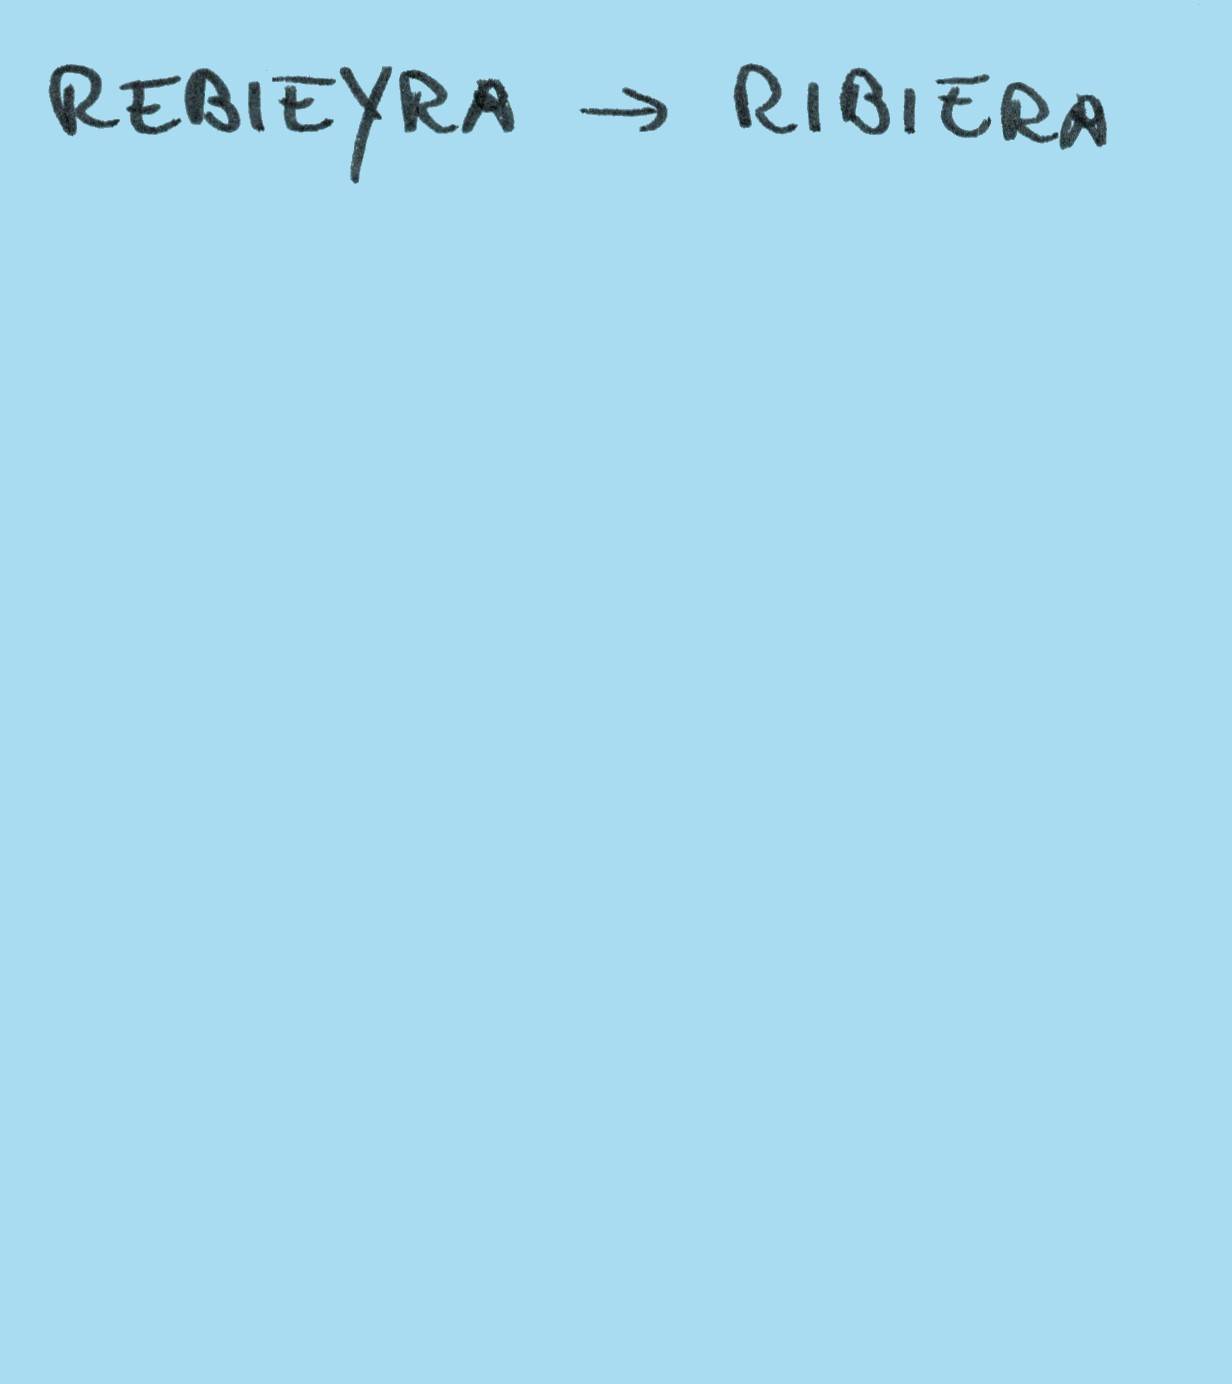 REBIEYRA → RIBIERA